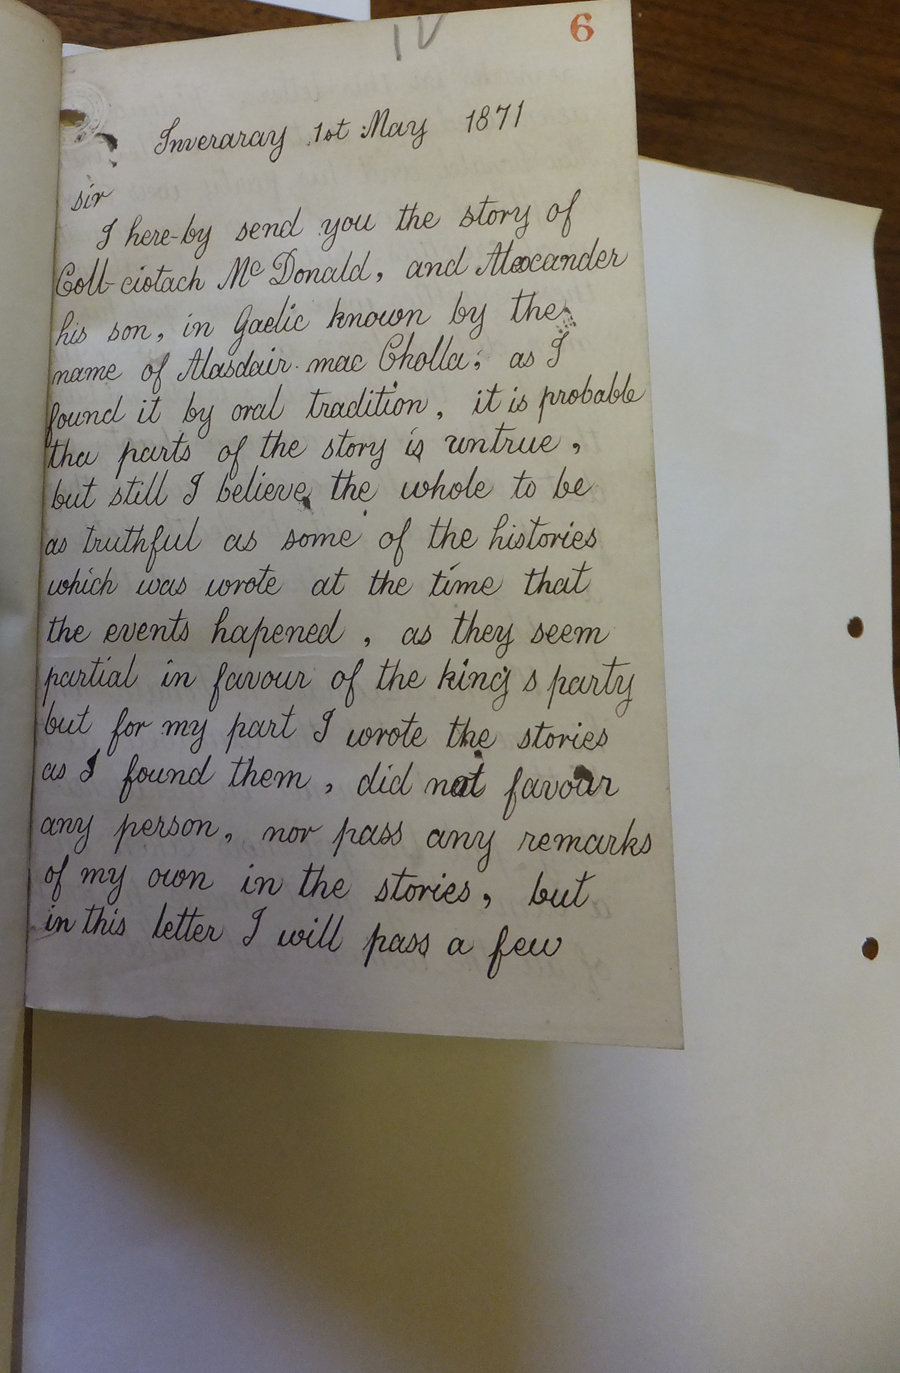 IV
6
Inveraray 1st May 1871
sir
I here-by send you the story of
Coll-ciotach Mc Donald, and Alexander
his son, in Gaelic known by the
name of Alasdair mac Cholla; as I
found it by oral tradition, it is probable
tha parts of the story is untrue,
but still I believe the whole to be
as truthful as some of the histories
which was wrote at the time that
the events hapened, as they seem
partial in favour of the king s party
but for my part I wrote the stories
as I found them, did not favour
any person, nor pass any remarks
of my own in the stories, but
in this letter I will pass a few